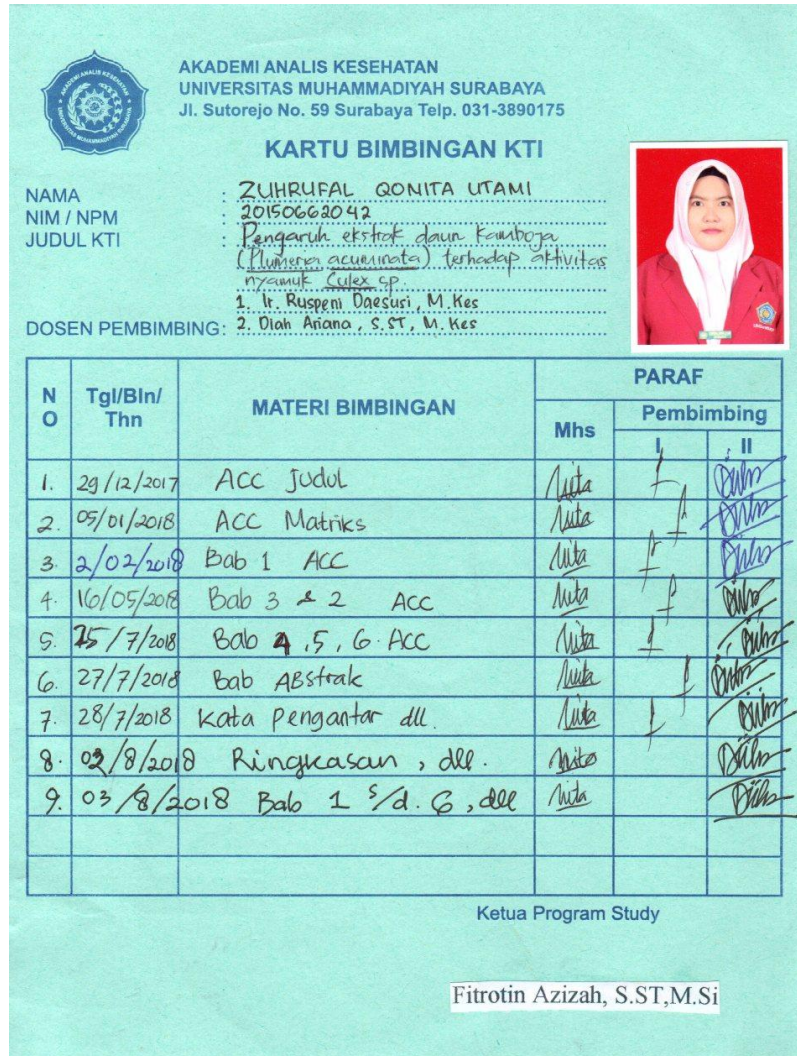 AKADEMI ANALIS KESEHATAN
UNIVERSITAS MUHAMMADIYAH SURABAYA
Jl. Sutorejo No. 59 Surabaya Telp. 031-3890175
KARTU BIMBINGAN KTI
NAMA : ZUHRUFAL QONITA UTAMI
NIM / NPM : 20150662042
JUDUL KTI : Pengaruh ekstrak daun kamboja
(Plumeria acuminata) terhadap aktivitas
nyamuk Culex sp.
1. Ir. Ruspeni Daesusi, M.Kes
DOSEN PEMBIMBING: 2. Diah Ariana, S.ST, M.Kes
NO Tgl/Bln/Thn MATERI BIMBINGAN PARAF
Mhs Pembimbing
I II
1. 29/12/2017 ACC Judul Nita
2. 05/01/2018 ACC Matriks Nita
3. 2/02/2018 Bab 1 ACC Nita
4. 16/05/2018 Bab 3 & 2 ACC Nita
5. 25/7/2018 Bab 4, 5, 6. ACC Nita
6. 27/7/2018 Bab ABstrak Nita
7. 28/7/2018 Kata Pengantar dll. Nita
8. 02/8/2018 Ringkasan, dll. Nita
9. 03/8/2018 Bab 1 s/d. 6, dll Nita
Ketua Program Study
Fitrotin Azizah, S.ST,M.Si